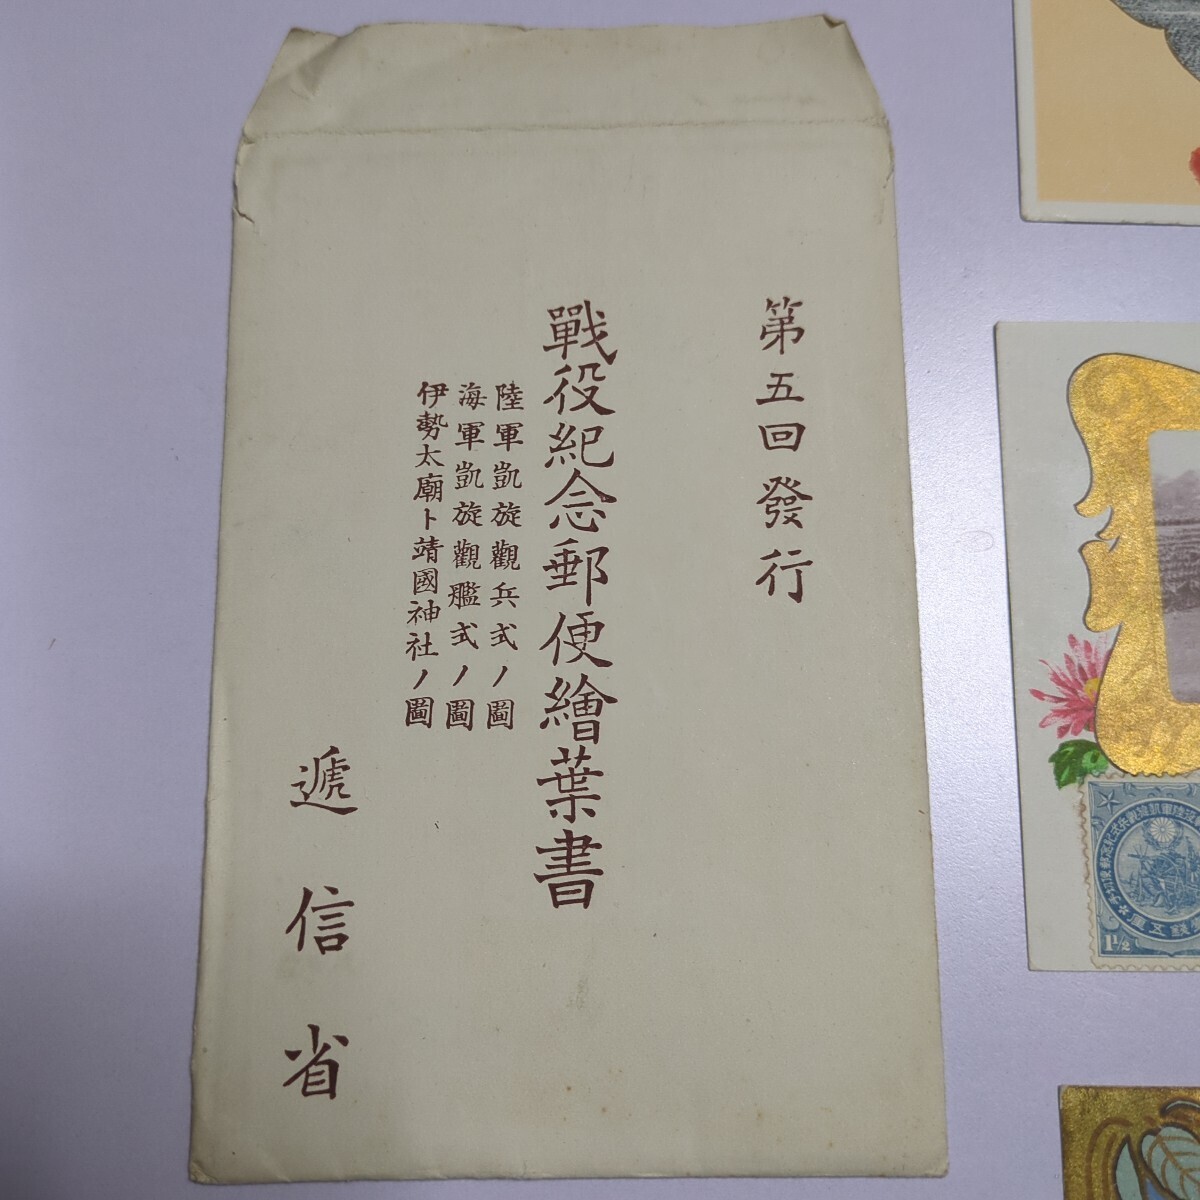 第五回發行
戰役紀念郵便繪葉書
陸軍凱旋觀兵式ノ圖
海軍凱旋觀艦式ノ圖
伊勢太廟ト靖國神社ノ圖
遞信省
1½